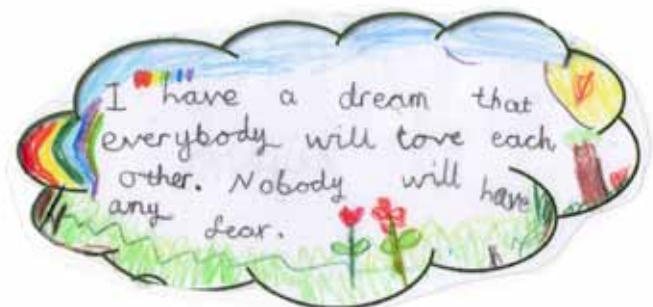 I have a dream that
everybody will love each
other. Nobody will have
any fear.